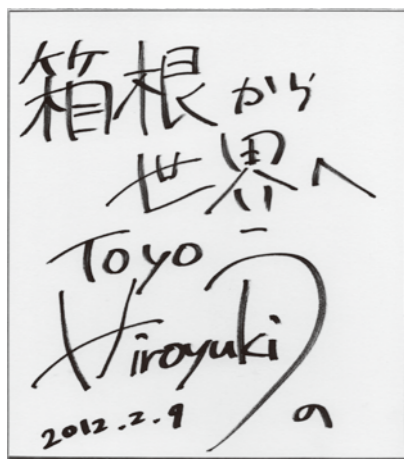 箱根から
世界へ
Toyo
Hiroyuki
2012.2.9 の